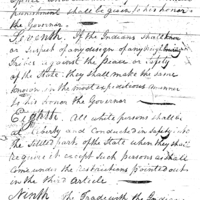 punishment shall be given to his honor
the Governor
Seventh. If the Indians shall
or suspect of any design of any neighbouring
Tribes against the peace or Safety
of the State they shall make the same
known in the most expeditious manner
to his honor the Governor
Eighth All white persons shall be
at liberty and Conducted in Safety into
the Settled parts of the State when they shall
require it except such persons as shall
come under the restrictions pointed out
in the third article
Ninth The Trade with the Indians